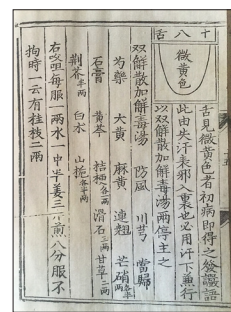 十八舌
微黄色
舌見微黄色者初病即得之發譫語
此由失汗表邪入裏也必用汗下兼行
以双解散加解毒湯兩停主之
双解散加解毒湯 防風 川芎 當歸
芍藥 大黄 麻黄 連翹 芒硝各半兩
石膏 黄芩 桔梗各一兩 滑石三兩 甘草二兩
荆芥半兩 白朮 山梔各半兩
右㕮咀每服一兩水一中半姜三片煎八分服不
拘時一云有桂枝二兩